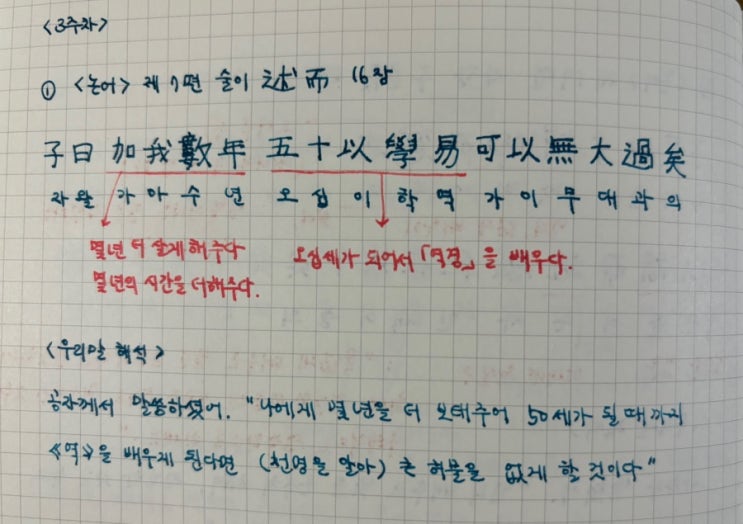 <3주차>
① <논어> 제7편 술이 述而 16장
子曰 加我數年 五十以學易可以無大過矣
자왈 가아수년 오십이학역가이무대과의
몇년 더 살게 해주다 오십세가 되어서 「역경」을 배우다.
몇년의 시간을 더해주다.
<우리말 해석>
공자께서 말씀하셨어. "나에게 몇년을 더 보태주어 50세가 될 때까지
《역》을 배우게 된다면 (천명을 알아) 큰 허물을 없게 할 것이다"